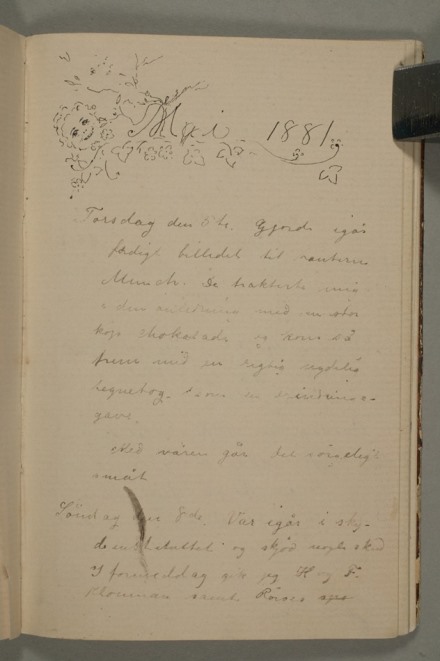 Mai 1881.
Torsdag den 5te. Gjorde igår
færdigt billedet til tanterne
Munch. De trakterte mig
i den anledning med en stor
kop chokolade og kom så
frem med en rigtig nydelig
tegnebog som en erindrings-
gave.
Med våren går det sørgeligt
småt
Søndag den 8de. Var igår i sky-
og skjød nogle skud
formiddag gik jeg H og F.
rundt